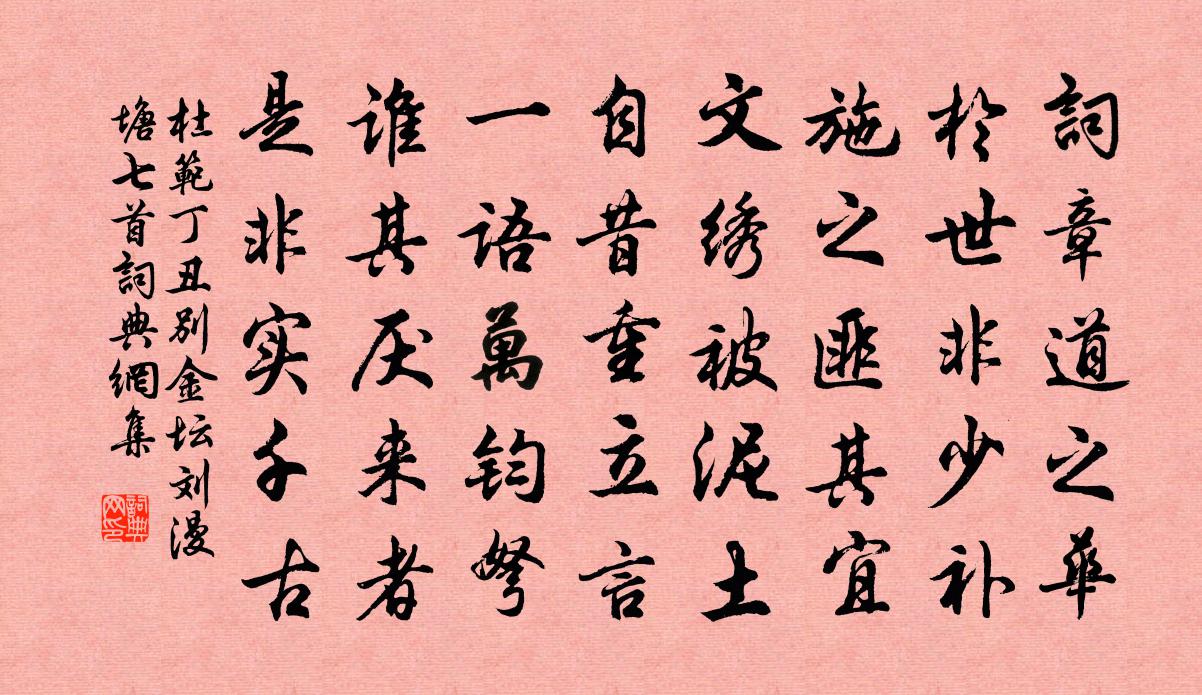 詞章道之華
於世非少补
施之匪其宜
文绣被泥土
自昔重立言
一语萬钧弩
谁其厌来者
是非实千古
杜範丁丑别金坛刘漫
塘七首詞典網集
詞典网印